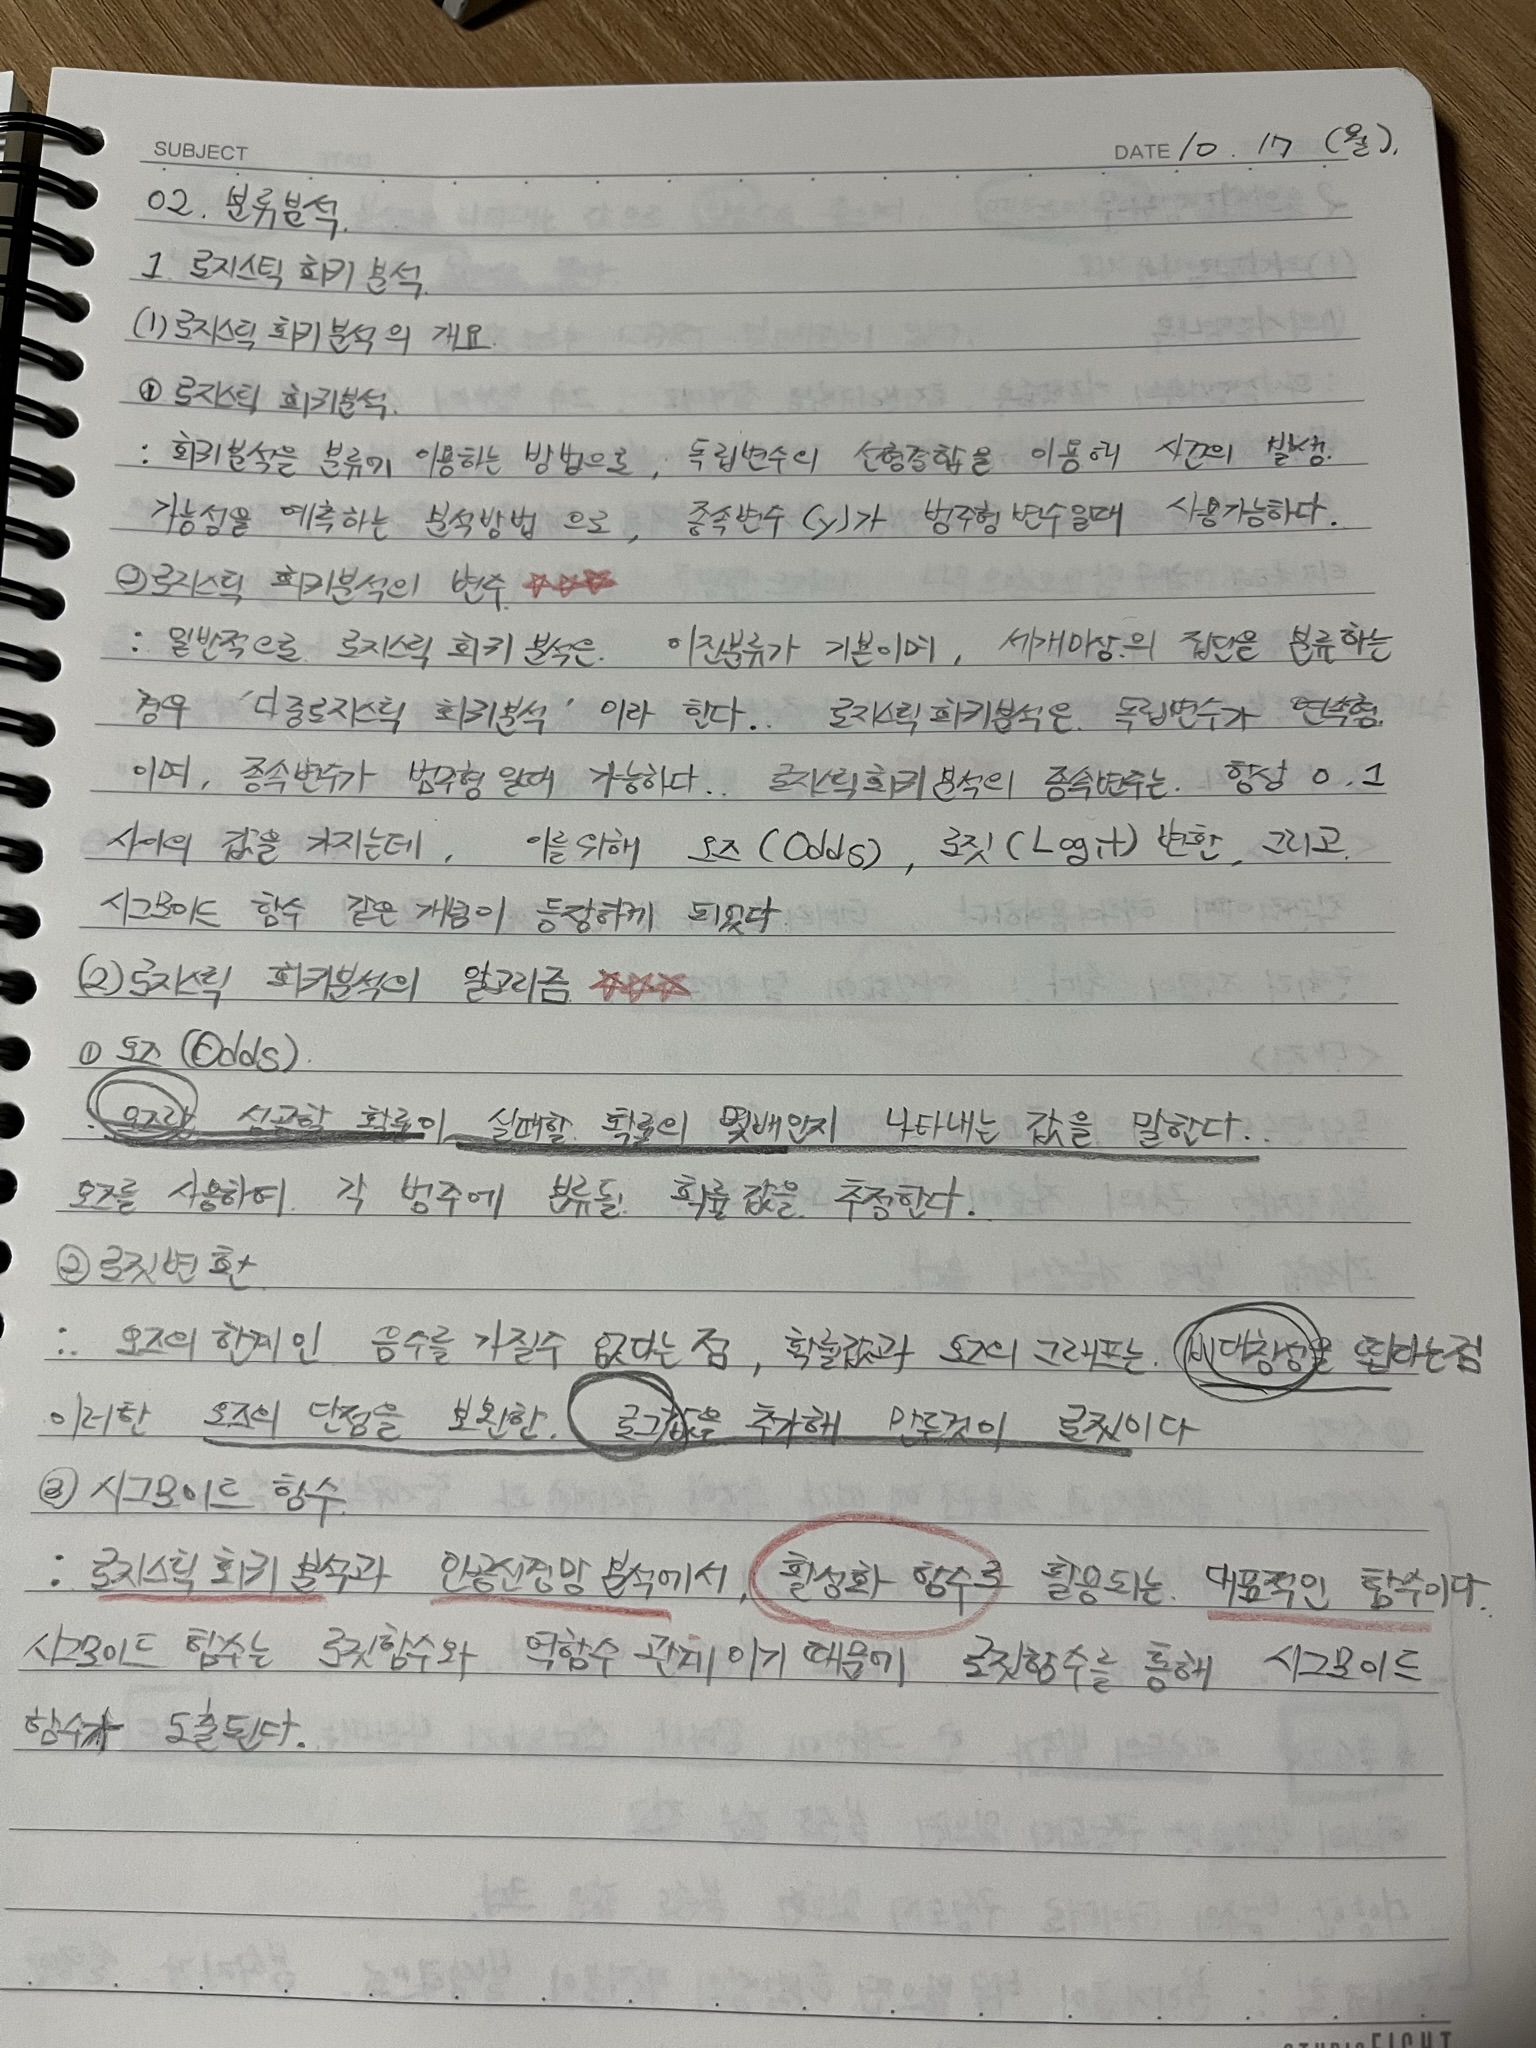 SUBJECT
DATE 10. 17 (월).
02. 분류분석.
1 로지스틱 회키 분석.
(1) 로지스틱 회키분석의 개요.
① 로지스틱 회키분석.
: 회키분석을 분류에 이용하는 방법으로, 독립변수의 선형결합을 이용해 사건의 발생.
가능성을 예측하는 분석방법 으로, 종속변수 (y)가 범주형 변수일때 사용가능하다.
② 로지스틱 회키분석의 변수 ☆☆☆
: 일반적으로 로지스틱 회키 분석은. 이진분류가 기본이며, 세개이상.의 집단을 분류하는
경우 '다중로지스틱 회키분석' 이라 한다.. 로지스틱회키분석은 독립변수가 연속형
이며, 종속변수가 범주형 일때 가능하다.. 로지스틱회키분석의 종속변수는. 항상 0.1
사이의 값을 가지는데, 이를위해 오즈 (Odds), 로짓 (Logit) 변환, 그리고
시그모이드 함수 같은 개념이 등장하게 되었다
(2) 로지스틱 회키분석의 알고리즘 ☆☆☆
① 오즈 (Odds).
: 오즈란 성공할 확률이 실패할 확률의 몇배인지 나타내는 값을 말한다..
오즈를 사용하여 각 범주에 분류될 확률 값을 추정한다.
② 로짓변환
: 오즈의 한계인 음수를 가질수 없다는 점, 확률값과 오즈의 그래프는 비대칭성을 띈다는점
이러한 오즈의 단점을 보완한. 로그값을 추가해 만든것이 로짓이다
③ 시그모이드 함수
: 로지스틱 회키 분석과 인공신경망 분석에서, 활성화 함수로 활용되는 대표적인 함수이다.
시그모이드 함수는 로짓함수와 역함수 관계 이기 때문에 로짓함수를 통해 시그모이드
함수가 도출된다.